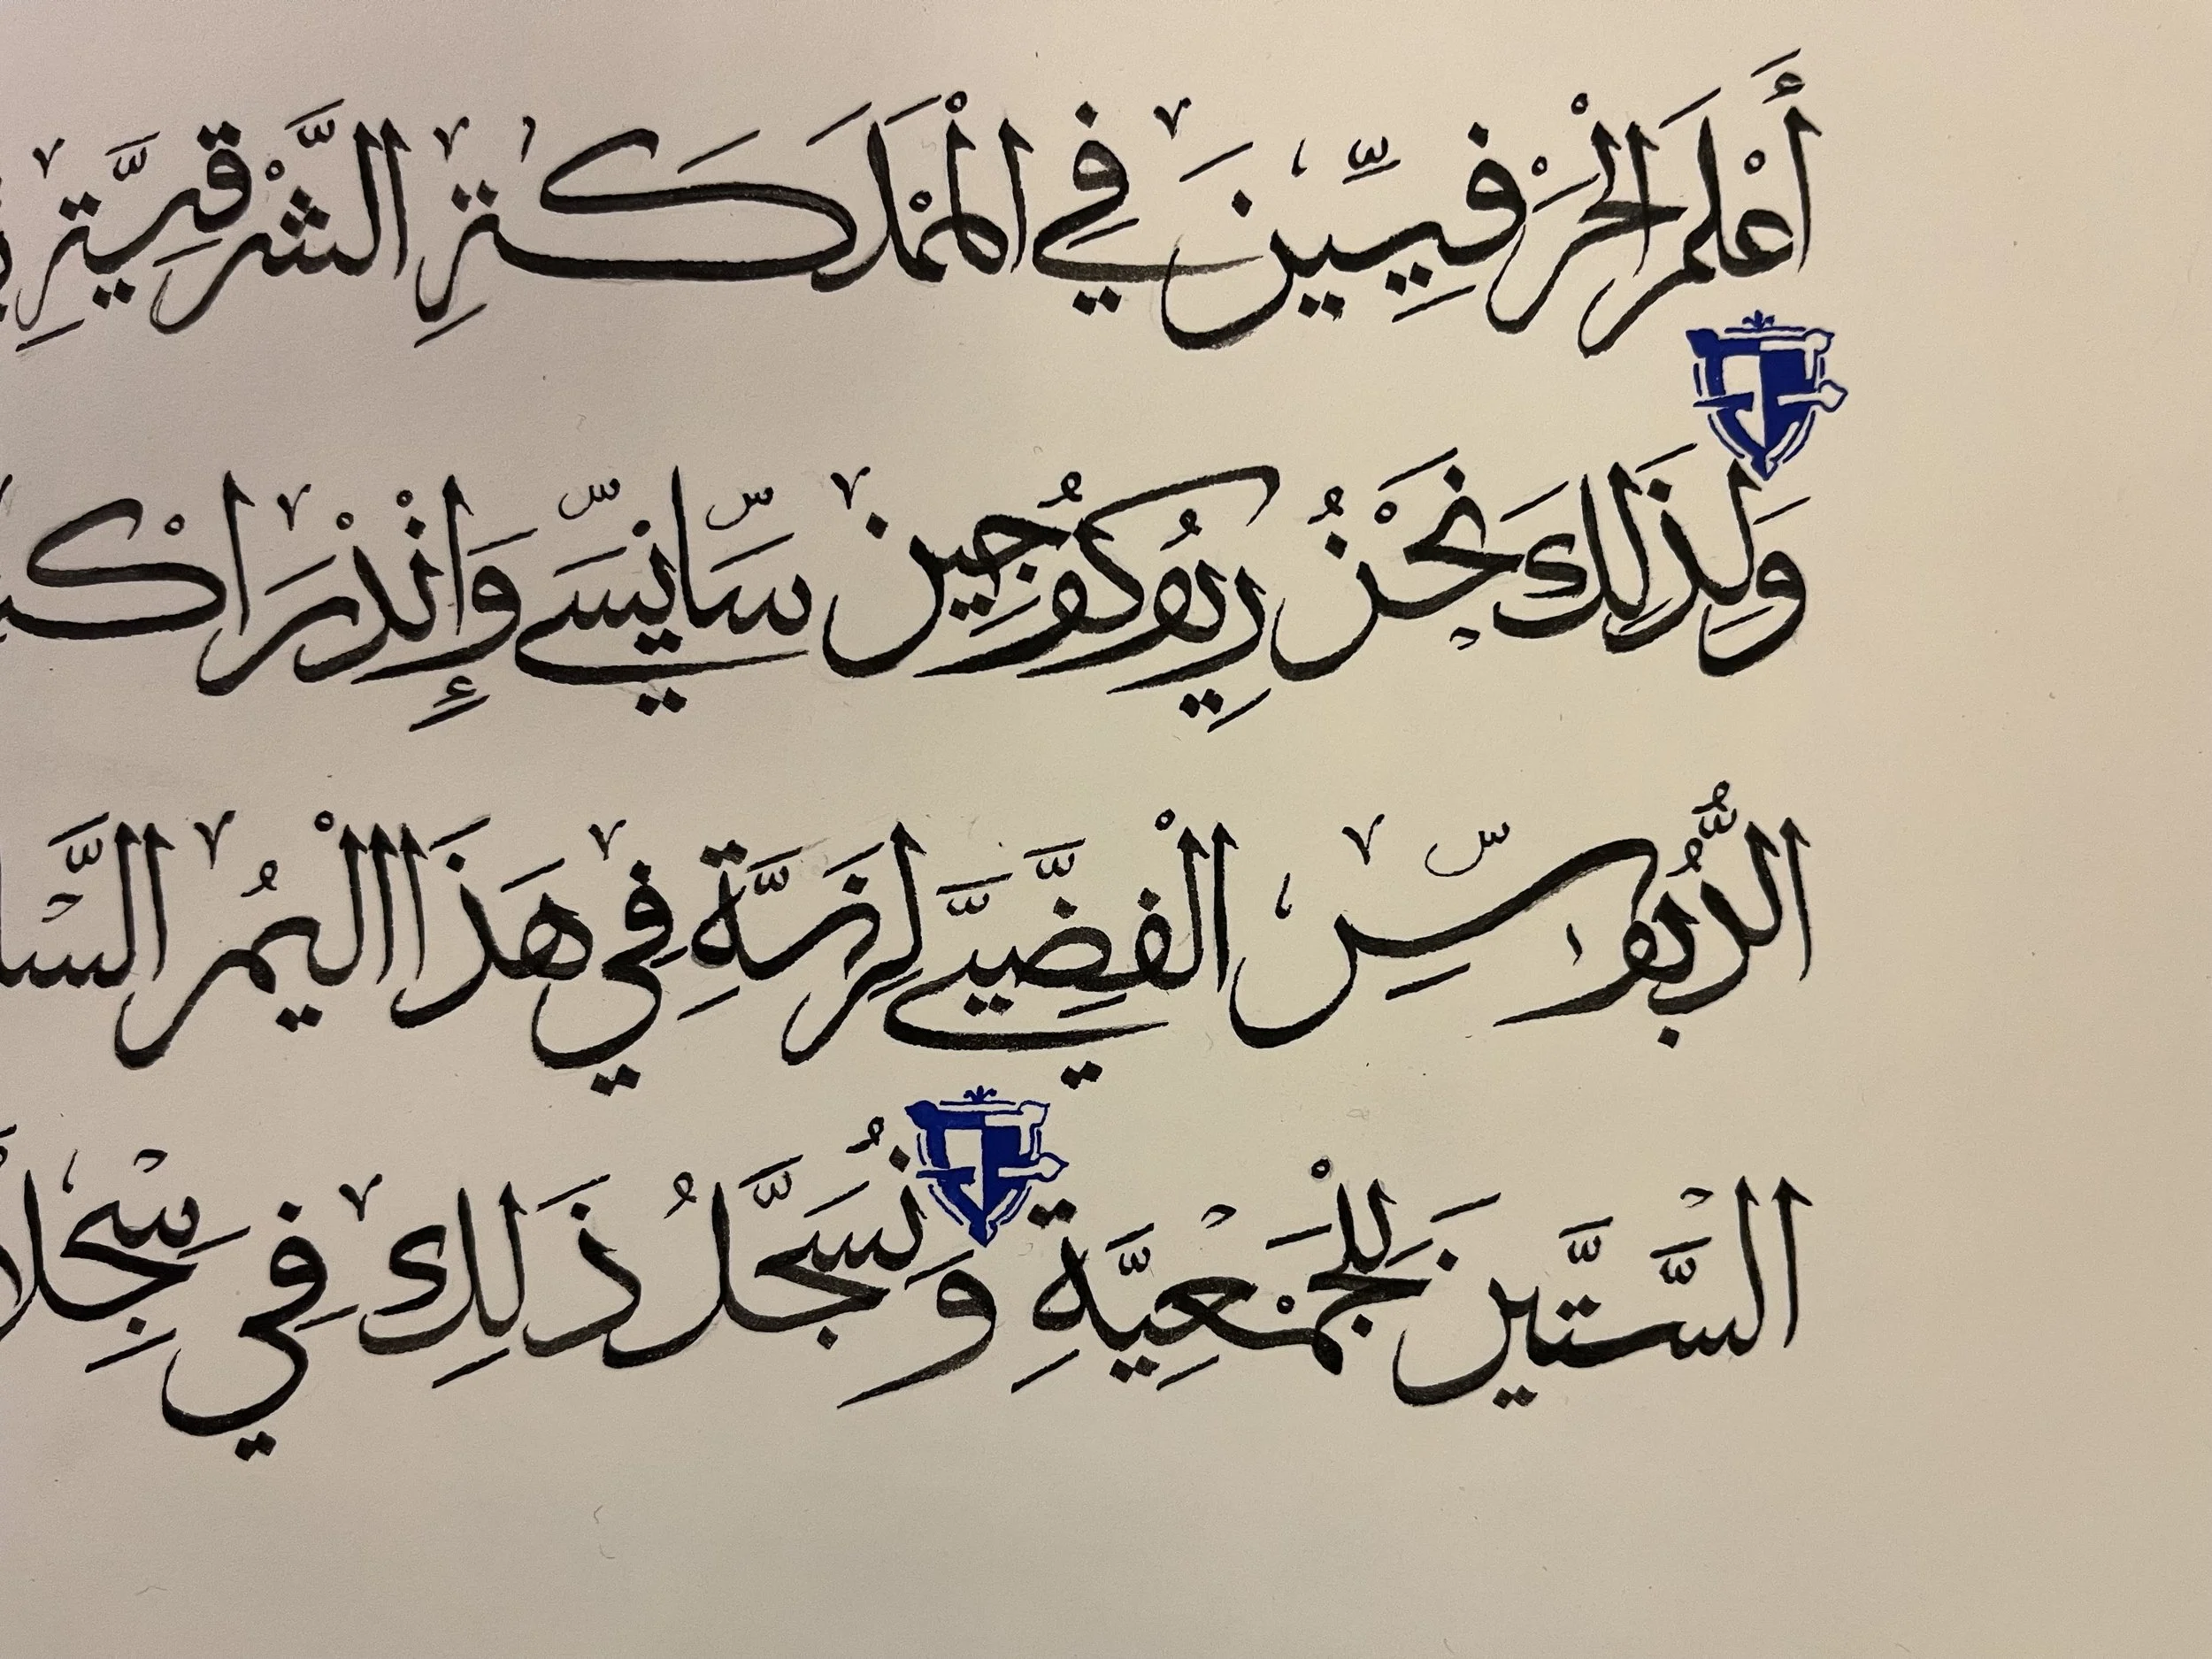 أَعْلَمَ الْحَرْفِيِّينَ فِي الْمَمْلَكَةِ الشَّرْقِيَّةِ
وَلِذَلِكَ نَحْنُ رِيُوكُوجِين سَّانِسَّے وَإِنْدْرَاكْ
الدُّبُورَسِّ الْفِضِّيَّے لِزَسَّةِ فِي هَذَا الْيُمْرِ السَّا
السَّتِّينَ لِلْجَمْعِيَّةِ وَنُسَجَّلُ ذَلِكَ فِي سِجِلَا